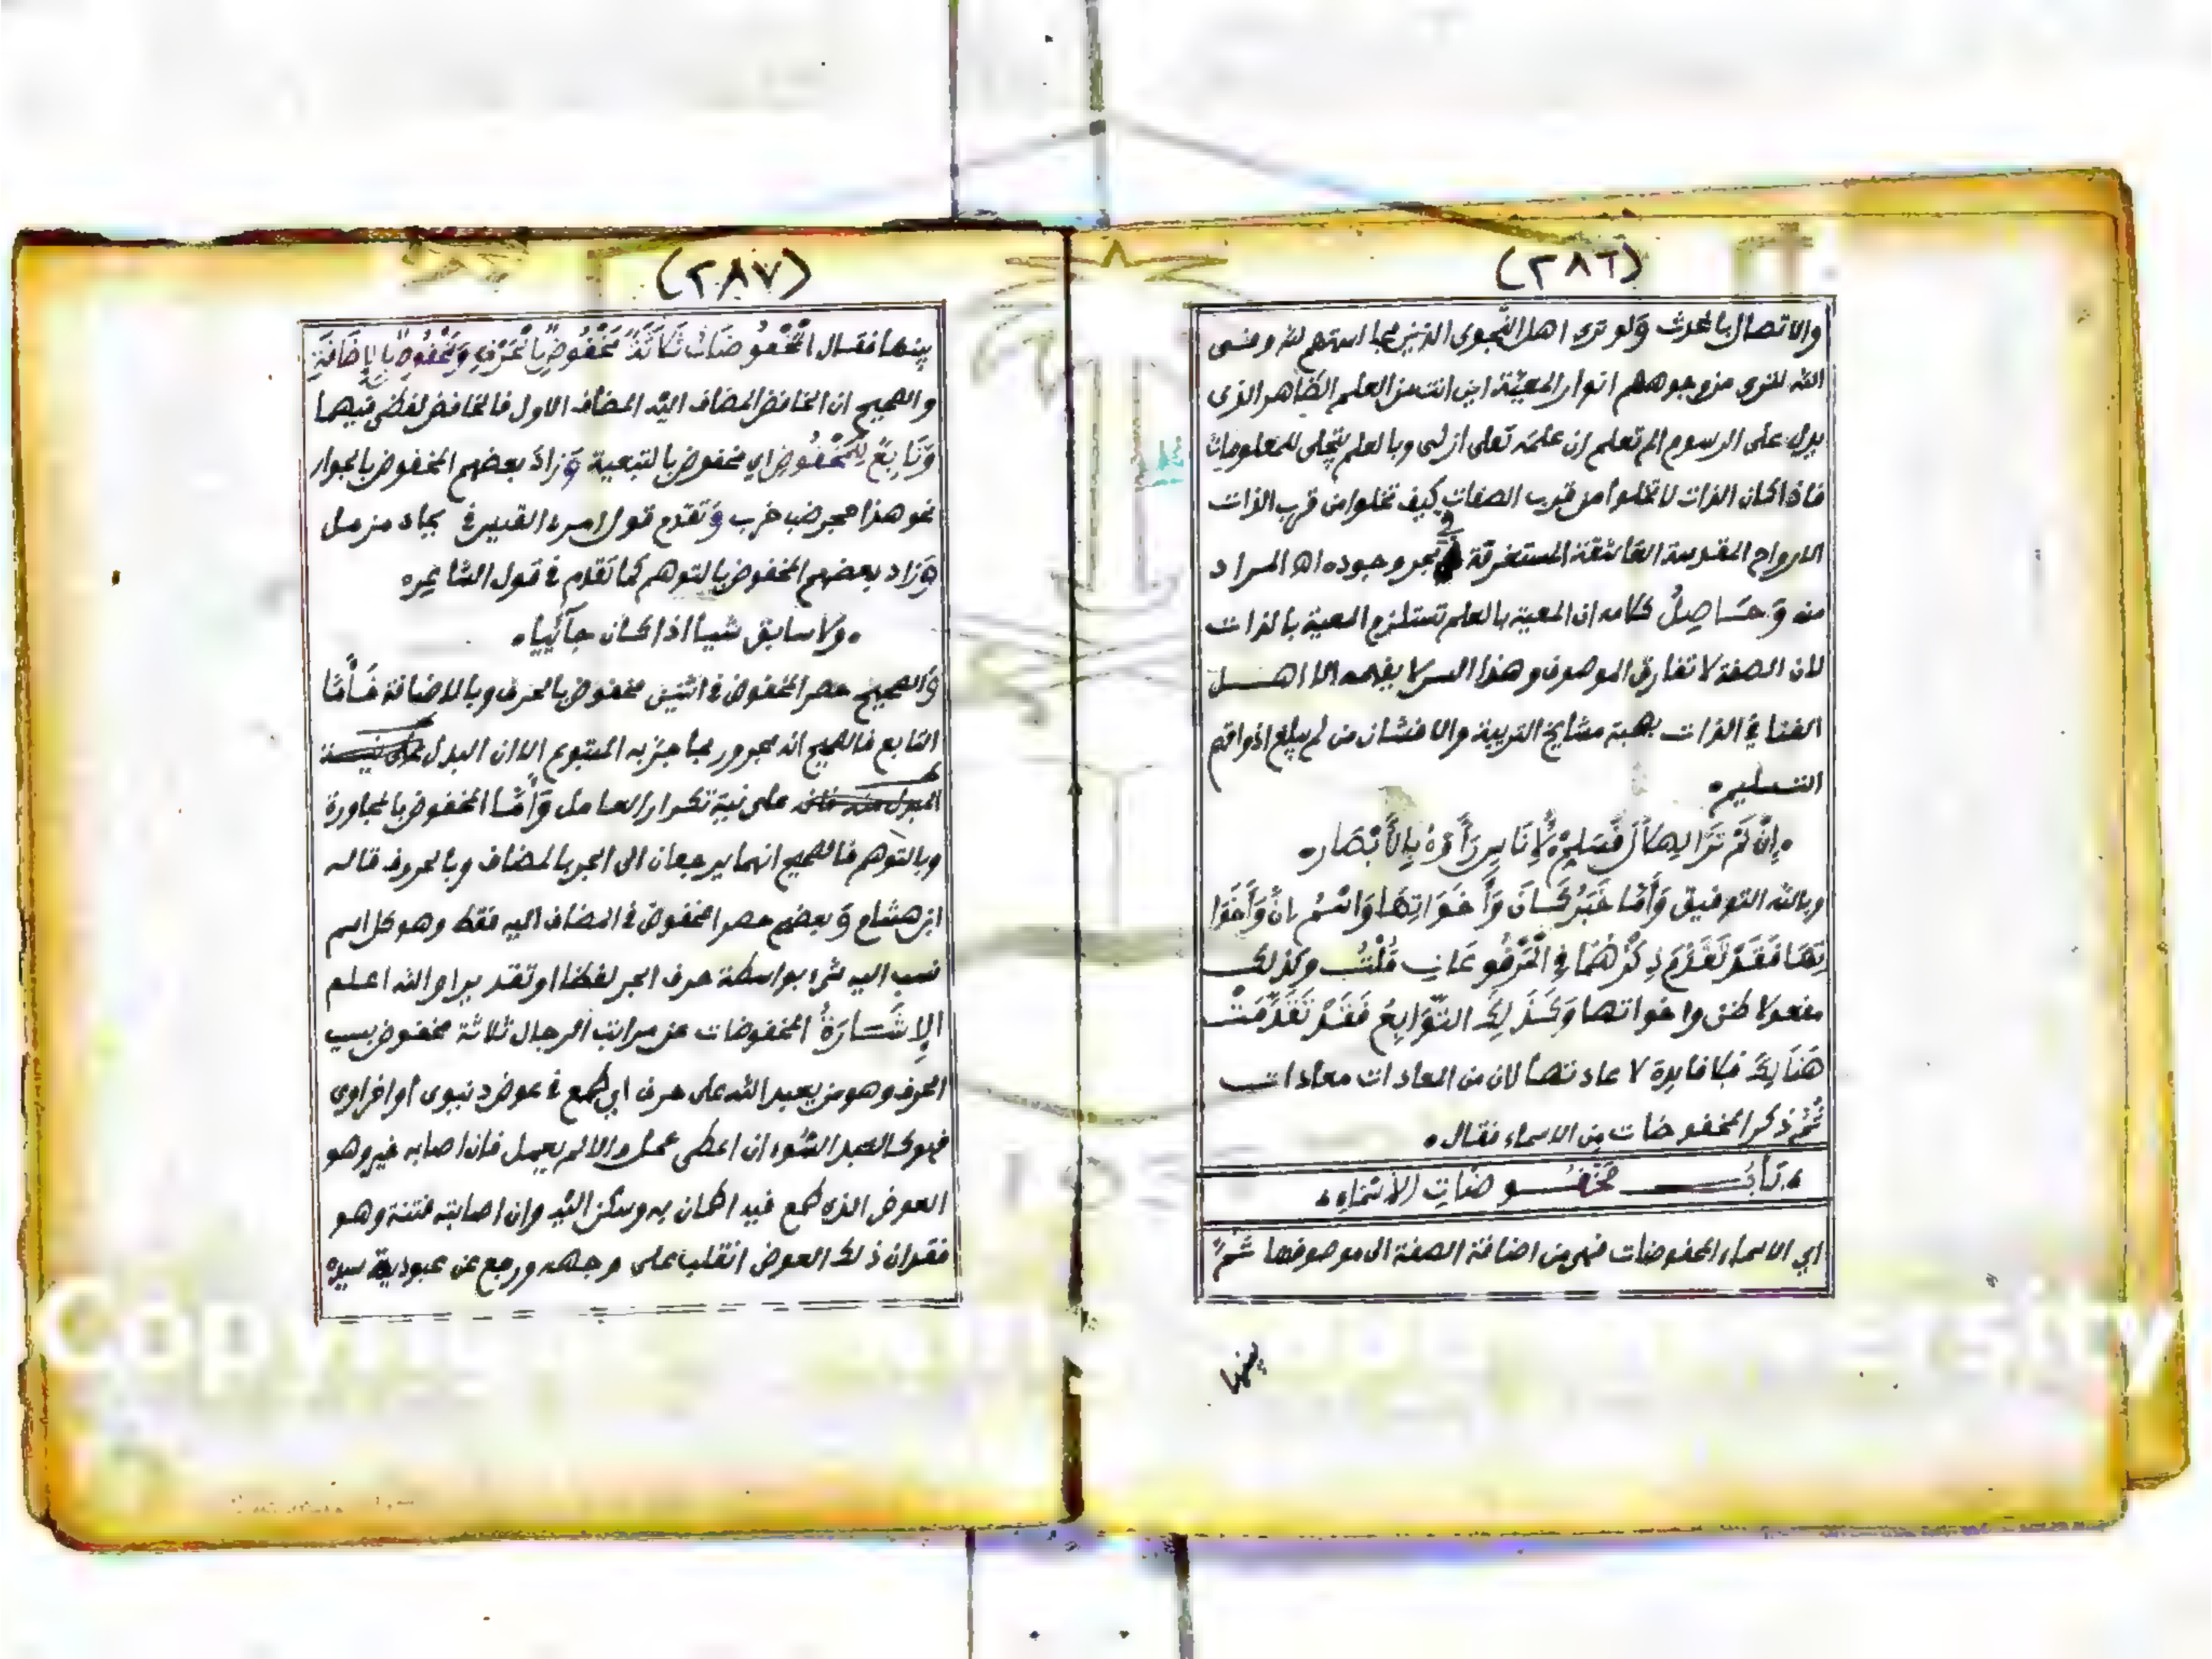 (٢٨٦)
والاتصال بالمحدث ولو ترى اهل النجوى الذين مجا استهم لله ومشى
الله للنوى من وجوههم انوار المعية اين انت من العلم الظاهر الذى
يدل على الرسوم الم تعلم ان علمه تعلى ازلى وبالعلم يتجلى للمعلومات
فاذا كان الذات لا تخلوا من قرب الصفات كيف تخلوا من قرب الذات
الارواح المقدسة العاشقة المستغرقة في بحر وجوده اه المراد
منه وَحَاصِلُ كلامه ان المعية بالعلم تستلزم المعية بالذات
لان الصفة لا تفارق الموصوف وهذا السر لا يفهمه الا اهـــل
الفنا في الذات بهبة مشايخ التربية والا فشان من لم يبلغ اذواقهم
التسليم.
.اِنْ لَمْ تَرَ الهِلَالَ فَسَلِّمْ لِأُنَاسٍ رَأَوْهُ بِالأَبْصَار.
وبالله التوفيق وَأَمَّا خَبَرُ كَــانَ وَأَخَوَاتِهَا وَاسْمُ إِنَّ وَأَخَوَا
تِهَا فَقَدْ تَقَدَّمَ ذِكْرُهُمَا فِي الْمَرْفُوعَاتِ قُلْتُ وكذلك
مفعولا ظن واخواتها وَكَــذَلِكَ التَّوَابِعُ فَقَدْ تَقَدَّمَتْ
هُنَالِكَ فلا فايدة لاعادتها لان من المعادات معادات
ثُمَّ ذكر المخفوضات من الاسماء فقال.
.بَابُ مَخْفُــوضَاتِ الأَسْمَاءِ.
اي الاسماء المخفوضات فهو من اضافة الصفة الى موصوفها ثُمَّ
بينها
(٢٨٧)
بينها فقــال الْمَخْفُوضَاتُ ثَلَاثَةٌ مَخْفُوضٌ بِالْحَرْفِ وَمَخْفُوضٌ بِالْإِضَافَةِ
والصحيح ان الخافض المضاف اليه المضاف الاول فالخافض لفظي فيهما
وَتَابِعٌ لِلْمَخْفُوضِ اي مخفوض بالتبعية وَزاد بعضهم المخفوض بالجوار
نحو هذا حجر ضب خرب وَتقدم قول امرء القيس في بجاد مزمل
وَزاد بعضهم المخفوض بالتوهم كما تقدم في قول الشاعره
.ولا سابق شيأ اذا كان جآئيا.
وَالصحيح حصر المخفوض في اثنين مخفوض بالحرف وبالاضافة فَــأَمَّا
التابع فالصحيح انه مجرور بما جز به المتبوع الا ان البدل على نيــة
المبدل منه فانه على نية تكرار العامل وَأَمَّــا المخفوض بالمجاورة
وبالتوهم فالصحيح انهما يرجعان الى الجر بالمضاف وبالحروف قاله
ابن هشام وَبعضهم حصر المخفوض في المضاف اليه فقط وهو كل اسم
نسب اليه شىء بواسطة حرف الجر لفظا او تقديرا والله اعلم
الإِشَــارَةُ المخفوضات عن مراتب الرجال ثلاثة مخفوض بسبب
الحرف وهو من يعبد الله على حرف اي طمع في عوض دنيوى أو اخراوى
فهو كالعبد السُّوء ان اعطى عمل والا لم يعمل فان اصابه خير وهو
العوض الذى طمع فيه اطمان به وسكن اليه وان اصابته فتنة وهو
فقدان ذلك العوض انقلب على وجهه ورجع عن عبودية سيده